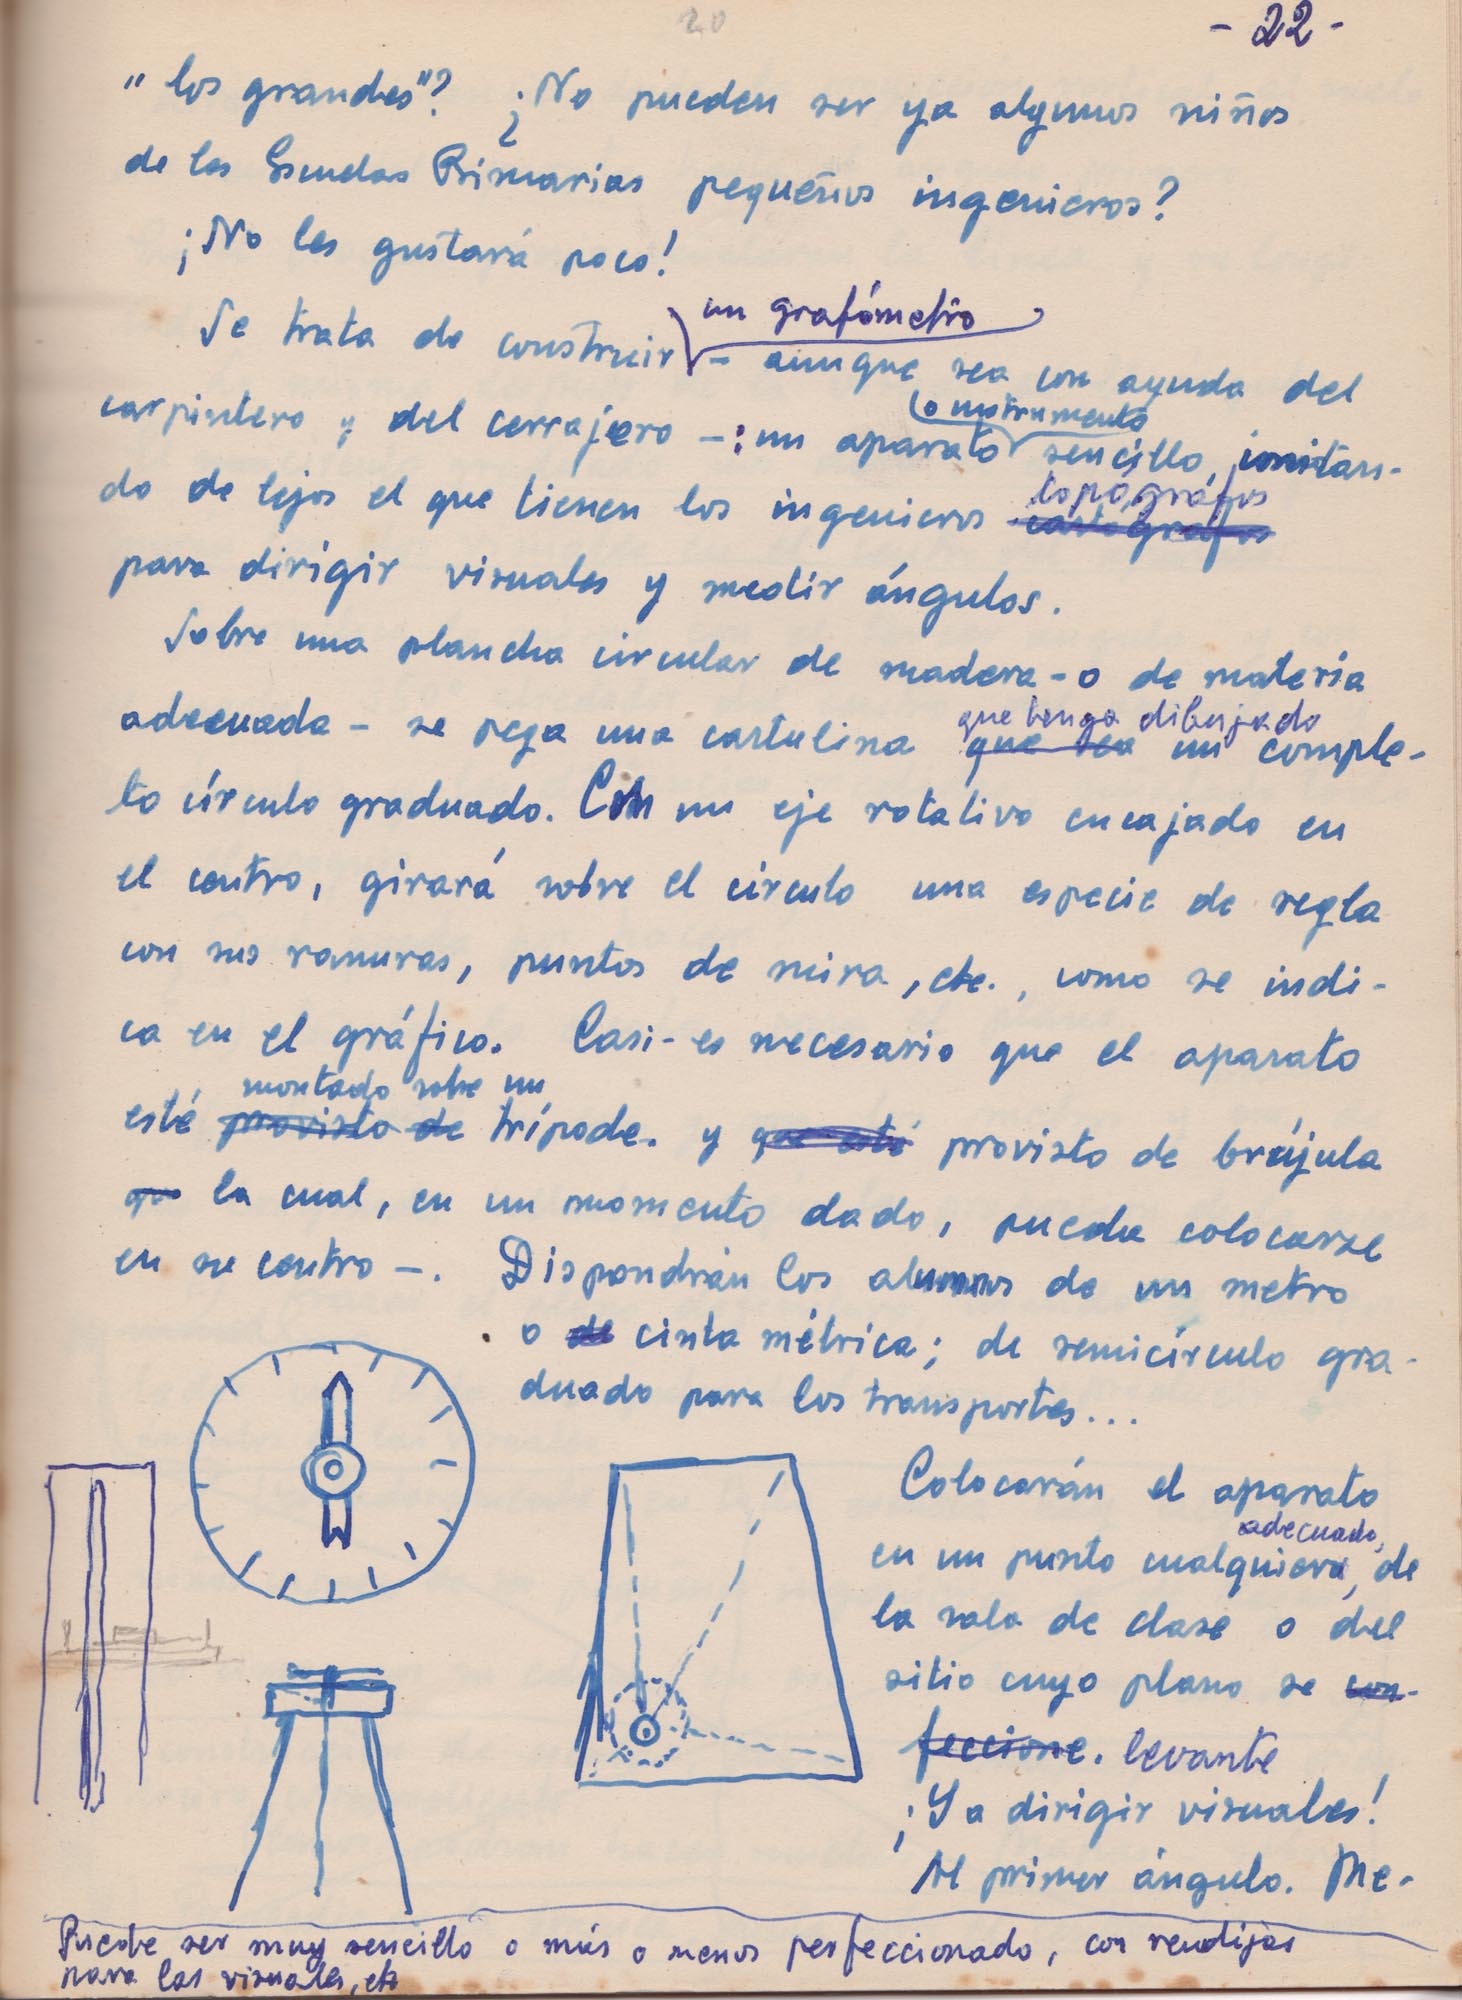 20
- 22 -
"los grandes"? ¿No pueden ser ya algunos niños
de las Escuelas Primarias pequeños ingenieros?
¡No les gustará poco!
un grafómetro
Se trata de construir - aunque sea con ayuda del
o instrumento
carpintero y del cerrajero -: un aparato sencillo, imitan-
topógrafos
do de lejos el que tienen los ingenieros cartógrafos
para dirigir visuales y medir ángulos.
Sobre una plancha circular de madera - o de materia
que tenga dibujado
adecuada - se pega una cartulina que sea un comple-
to círculo graduado. Con un eje rotativo encajado en
el centro, girará sobre el círculo una especie de regla
con sus ranuras, puntos de mira, etc., como se indi-
ca en el gráfico. Casi - es necesario que el aparato
montado sobre un
esté provisto de trípode. y que esté provisto de brújula
que la cual, en un momento dado, puede colocarse
en su centro -. Dispondrán los alumnos de un metro
o de cinta métrica; de semicírculo gra-
duado para los transportes...
Colocarán el aparato
adecuado,
en un punto cualquiera, de
la sala de clase o del
sitio cuyo plano se con-
feccione. levante
¡Y a dirigir visuales!
Al primer ángulo. Me-
Puede ser muy sencillo o más o menos perfeccionado, con rendijas
para las visuales, etc